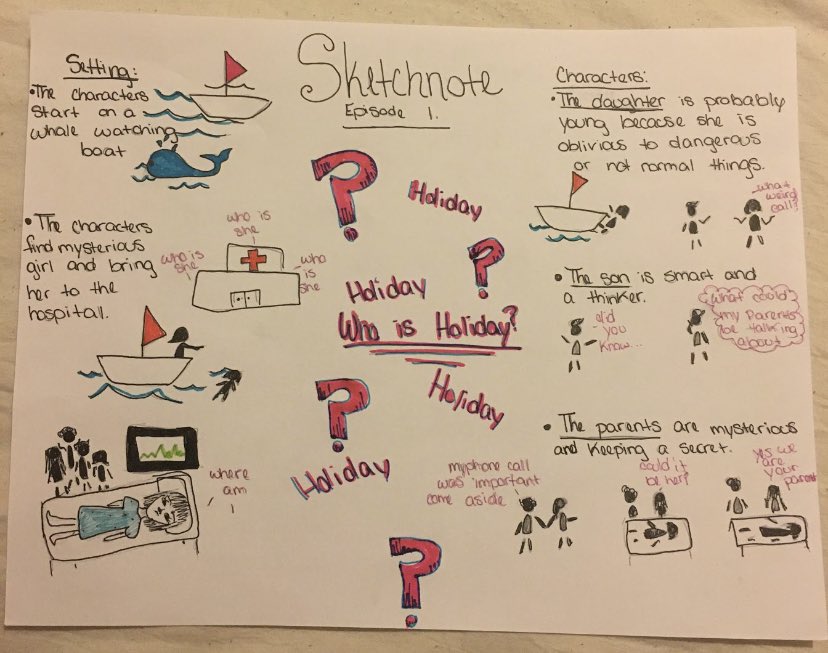 Sketchnote
Episode 1.
Setting:
• The characters
start on a
whale watching
boat
• The characters
find mysterious
girl and bring
her to the
hospital.
who is
she
who is
she
who
is
she
where
am
I
Holiday
Holiday
Who is Holiday?
Holiday
Holiday
?
?
?
?
Characters:
• The daughter is probably
young because she is
oblivious to dangerous
or not normal things.
what
weird
call?
• The son is smart and
a thinker.
did
you
know...
what could
my parents
be talking
about
• The parents are mysterious
and keeping a secret.
my phone call
was important
come aside
could it
be her?
yes we
are
your
parent